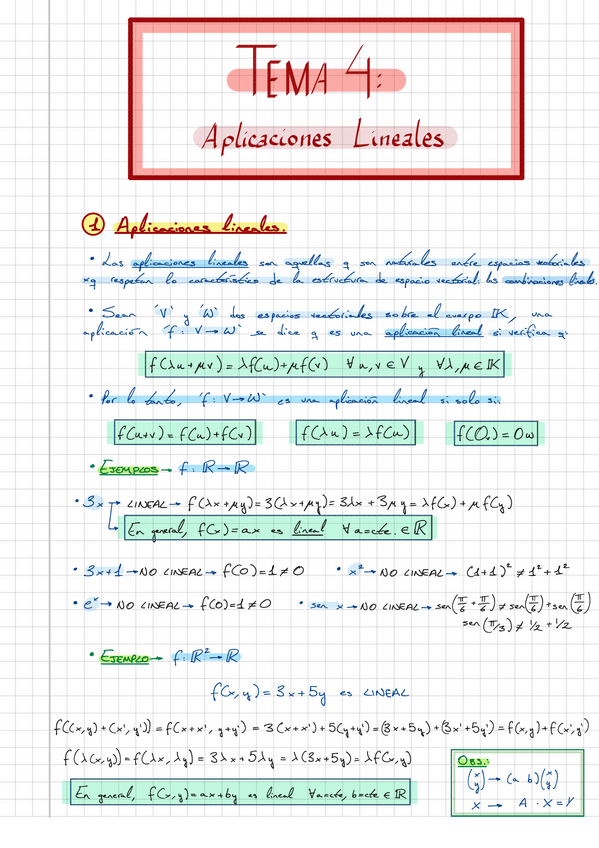 TEMA 4:
Aplicaciones Lineales
1 Aplicaciones lineales.
• Las aplicaciones lineales son aquellas q son naturales entre espacios vectoriales
xq respetan lo característico de la estructura de espacio vectorial: las combinaciones lineales.
• Sean 'V' y 'W' dos espacios vectoriales sobre el cuerpo IK, una
aplicación 'f: V→W' se dice q es una aplicación lineal si verifica q:
f(λu+μv)=λf(u)+μf(v) ∀u,v∈V y ∀λ,μ∈IK
• Por lo tanto, 'f: V→W' es una aplicación lineal si solo si:
f(u+v)=f(u)+f(v) f(λu)=λf(u) f(0ᵥ)=0w
• EJEMPLOS → f: ℝ→ℝ
• 3x → LINEAL → f(λx+μy)=3(λx+μy)=3λx+3μy=λf(x)+μf(y)
En general, f(x)=ax es lineal ∀a=cte. ∈ℝ
• 3x+1 → NO LINEAL → f(0)=1≠0 • x² → NO LINEAL → (1+1)²≠1²+1²
• eˣ → NO LINEAL → f(0)=1≠0 • sen x → NO LINEAL → sen(π/6+π/6)≠sen(π/6)+sen(π/6)
sen(π/3)≠1/2+1/2
• EJEMPLO → f: ℝ²→ℝ
f(x,y)=3x+5y es LINEAL
f((x,y)+(x',y'))=f(x+x', y+y')=3(x+x')+5(y+y')=(3x+5y)+(3x'+5y')=f(x,y)+f(x',y')
f(λ(x,y))=f(λx,λy)=3λx+5λy=λ(3x+5y)=λf(x,y)
En general, f(x,y)=ax+by es lineal ∀a=cte, b=cte ∈ℝ
OBS.:
(x y)→(a b)(x y)
X → A·X=Y